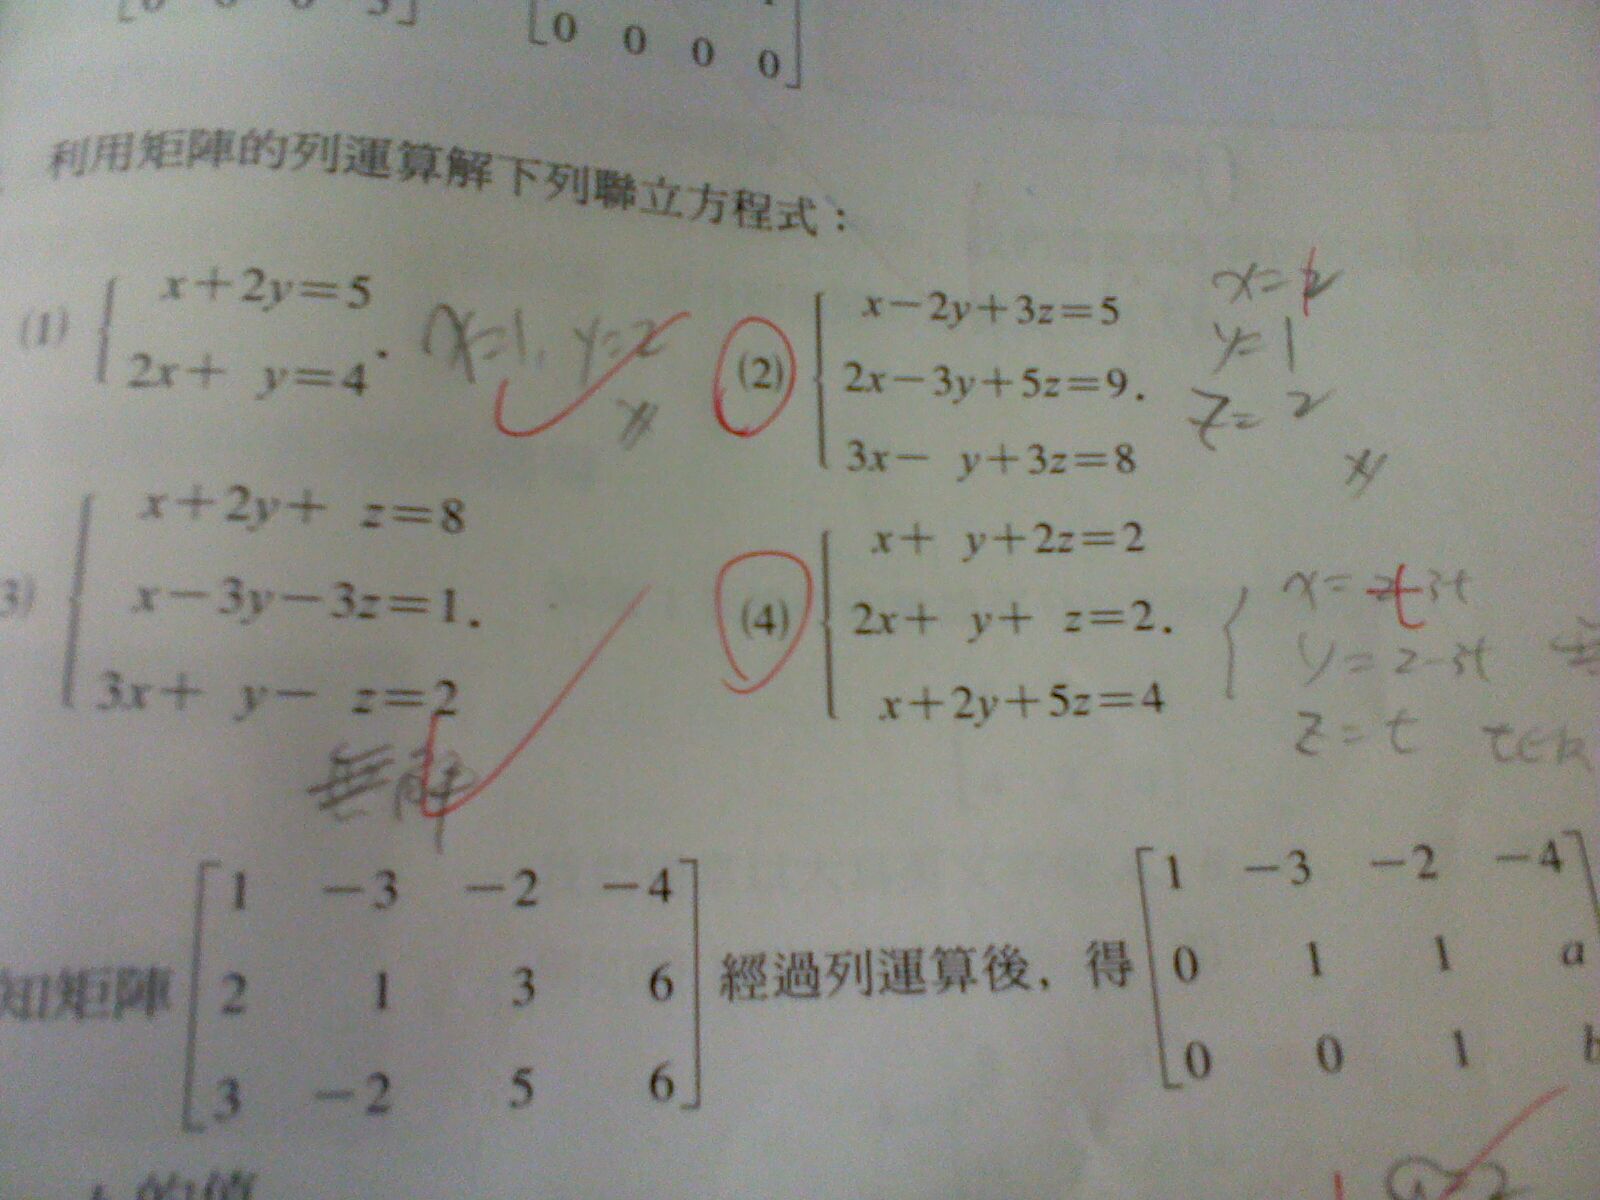 0 0 0 3
0 0 0 0
利用矩陣的列運算解下列聯立方程式：
(1) x+2y=5
2x+ y=4. x=1, y=2
(2) x-2y+3z=5
2x-3y+5z=9.
3x- y+3z=8
x=
y=1
z=2
3) x+2y+ z=8
x-3y-3z=1.
3x+ y- z=2
無解
(4) x+ y+2z=2
2x+ y+ z=2.
x+2y+5z=4
x= t
y=2-3t
z=t t∈R
知矩陣
1 -3 -2 -4
2 1 3 6
3 -2 5 6
經過列運算後，得
1 -3 -2 -4
0 1 1 a
0 0 1 b
的值